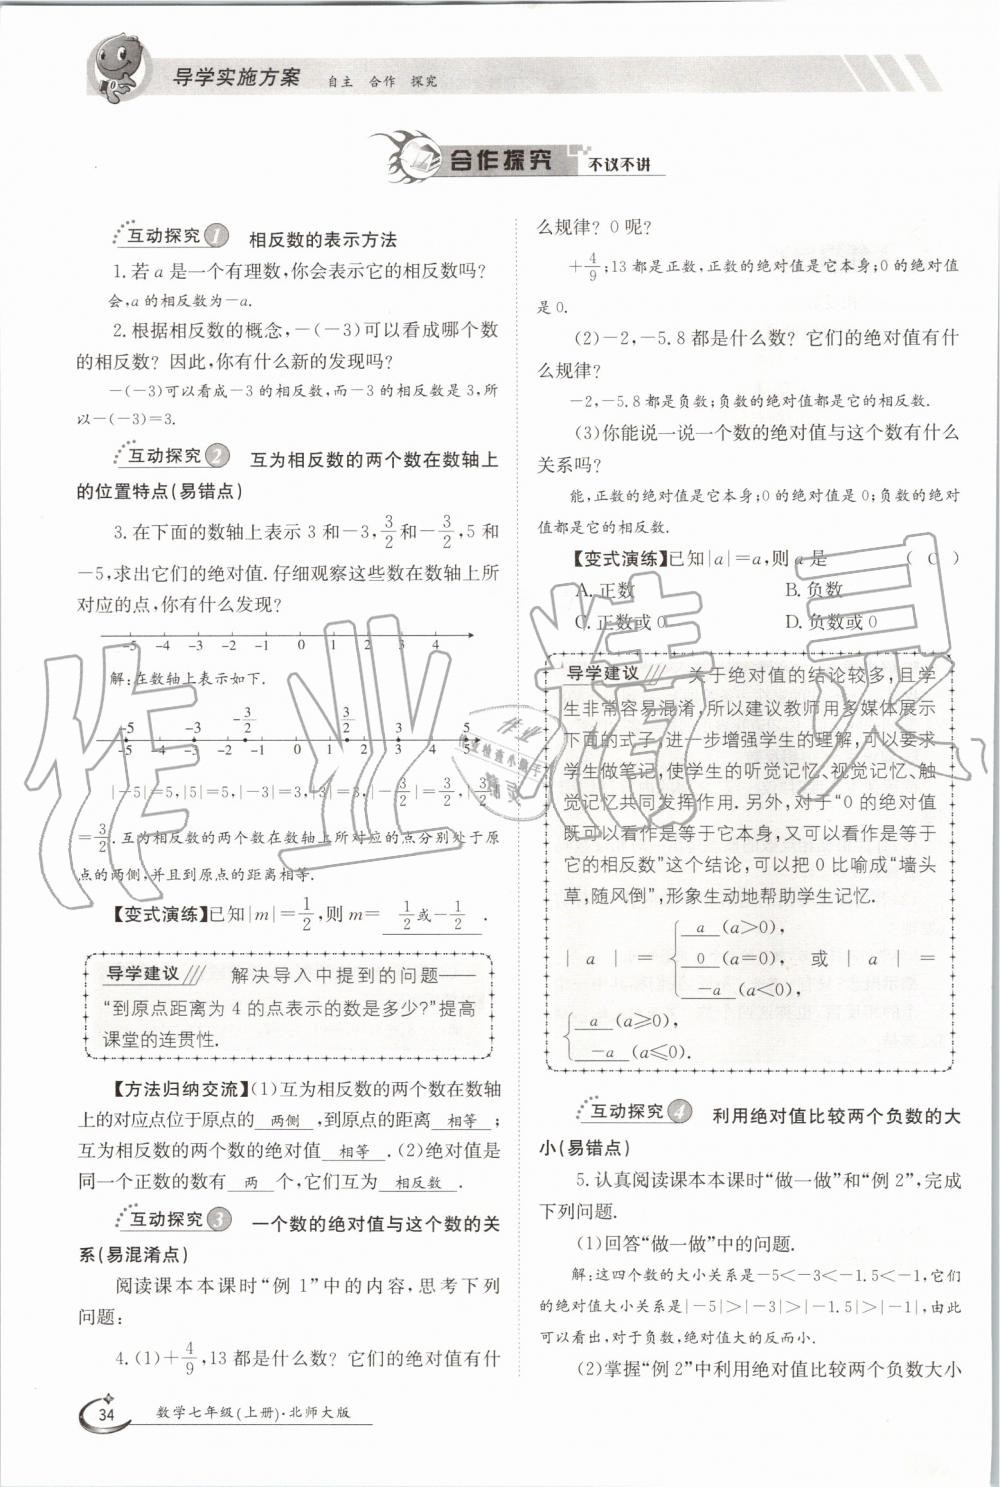 导学实施方案 自主 合作 探究
合作探究 不议不讲
互动探究1 相反数的表示方法
1.若a是一个有理数,你会表示它的相反数吗?
会,a的相反数为-a.
2.根据相反数的概念,-(-3)可以看成哪个数
的相反数? 因此,你有什么新的发现吗?
-(-3)可以看成-3的相反数,而-3的相反数是3,所
以-(-3)=3.
互动探究2 互为相反数的两个数在数轴上
的位置特点(易错点)
3.在下面的数轴上表示3和-3,3/2和-3/2,5和
-5,求出它们的绝对值.仔细观察这些数在数轴上所
对应的点,你有什么发现?
-5 -4 -3 -2 -1 0 1 2 3 4
解:在数轴上表示如下.
-5 -3 -3/2 3/2 3 5
-5 -4 -3 -2 -1 0 1 2 3 4 5
|-5|=5,|5|=5,|-3|=3,|3|=3,|-3/2|=3/2,|3/2|
=3/2.互为相反数的两个数在数轴上所对应的点分别处于原
点的两侧,并且到原点的距离相等.
【变式演练】已知|m|=1/2,则m= 1/2或-1/2 .
导学建议 解决导入中提到的问题——
“到原点距离为4的点表示的数是多少?”提高
课堂的连贯性.
【方法归纳交流】(1)互为相反数的两个数在数轴
上的对应点位于原点的 两侧 ,到原点的距离 相等 ;
互为相反数的两个数的绝对值 相等 .(2)绝对值是
同一个正数的数有 两 个,它们互为 相反数 .
互动探究3 一个数的绝对值与这个数的关
系(易混淆点)
阅读课本本课时“例1”中的内容,思考下列
问题:
4.(1)+4/9,13都是什么数? 它们的绝对值有什
么规律? 0呢?
+4/9;13都是正数,正数的绝对值是它本身;0的绝对值
是0.
(2)-2,-5.8都是什么数? 它们的绝对值有什
么规律?
-2,-5.8都是负数;负数的绝对值都是它的相反数.
(3)你能说一说一个数的绝对值与这个数有什么
关系吗?
能,正数的绝对值是它本身;0的绝对值是0;负数的绝对
值都是它的相反数.
【变式演练】已知|a|=a,则a是 ( C )
A.正数 B.负数
C.正数或0 D.负数或0
导学建议 关于绝对值的结论较多,且学
生非常容易混淆,所以建议教师用多媒体展示
下面的式子,进一步增强学生的理解,可以要求
学生做笔记,使学生的听觉记忆、视觉记忆、触
觉记忆共同发挥作用.另外,对于“0的绝对值
既可以看作是等于它本身,又可以看作是等于
它的相反数”这个结论,可以把0比喻成“墙头
草,随风倒”,形象生动地帮助学生记忆.
a (a>0),
|a|= 0 (a=0), 或|a|=
-a (a<0),
a (a≥0),
-a (a≤0).
互动探究4 利用绝对值比较两个负数的大
小(易错点)
5.认真阅读课本本课时“做一做”和“例2”,完成
下列问题.
(1)回答“做一做”中的问题.
解:这四个数的大小关系是-5<-3<-1.5<-1,它们
的绝对值大小关系是|-5|>|-3|>|-1.5|>|-1|,由此
可以看出,对于负数,绝对值大的反而小.
(2)掌握“例2”中利用绝对值比较两个负数大小
34 数学七年级(上册)·北师大版
作业精灵